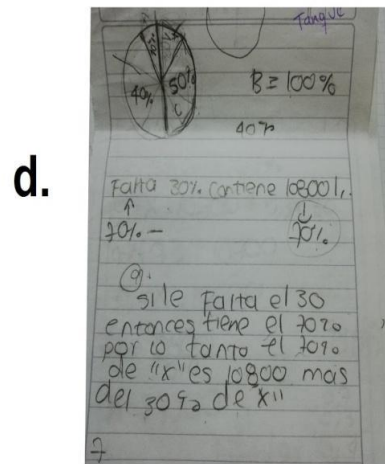 Tanque
d.
40%
50%
C
B = 100%
40%
Falta 30%. Contiene 10800 l,.
70%. —
70%.
9).
si le Falta el 30
entonces tiene el 70%
por lo tanto el 70%
de "x" es 10800 mas
del 30% de "x"